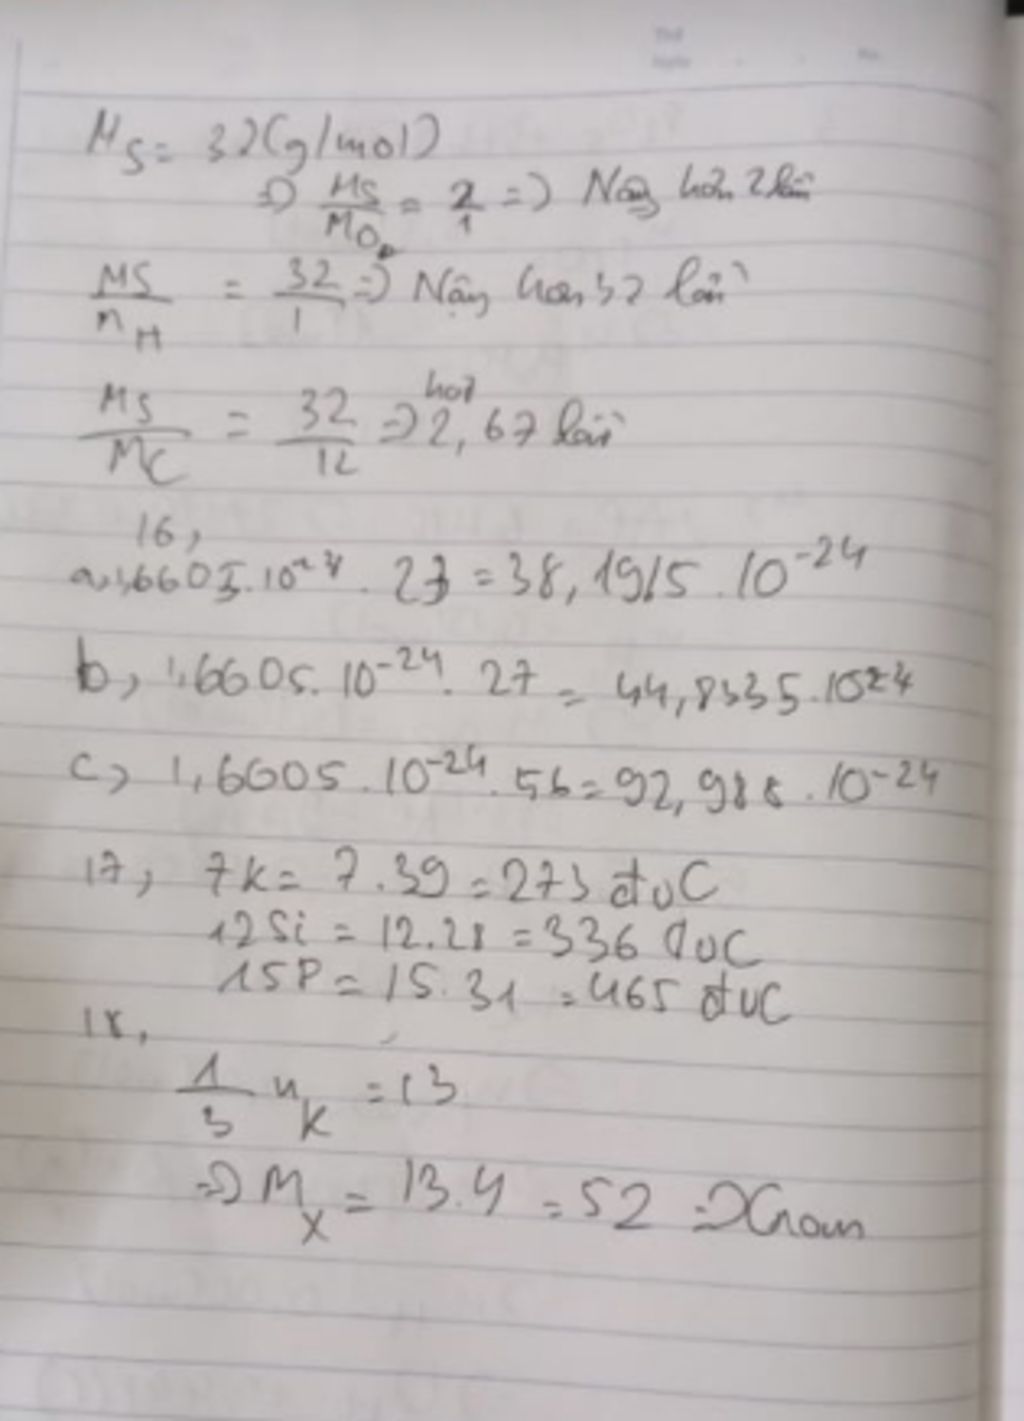 MS = 32(g/mol)
=> MS/MO = 2/1 => Nặng hơn 2 lần
MS/nH = 32/1 => Nặng hơn 32 lần
MS/MC = 32/12 => hơn 2,67 lần
16,
a, 1,6605.10⁻²⁴ . 23 = 38,1915 . 10⁻²⁴
b, 1,6605. 10⁻²⁴ . 27 = 44,8335.10⁻²⁴
c, 1,6605 . 10⁻²⁴ . 56 = 92,988 . 10⁻²⁴
17, 7K = 7.39 = 273 đvC
12Si = 12.28 = 336 đvC
15P = 15.31 = 465 đvC
18,
1/3 K = 13
=> MX = 13.4 = 52 => Crom